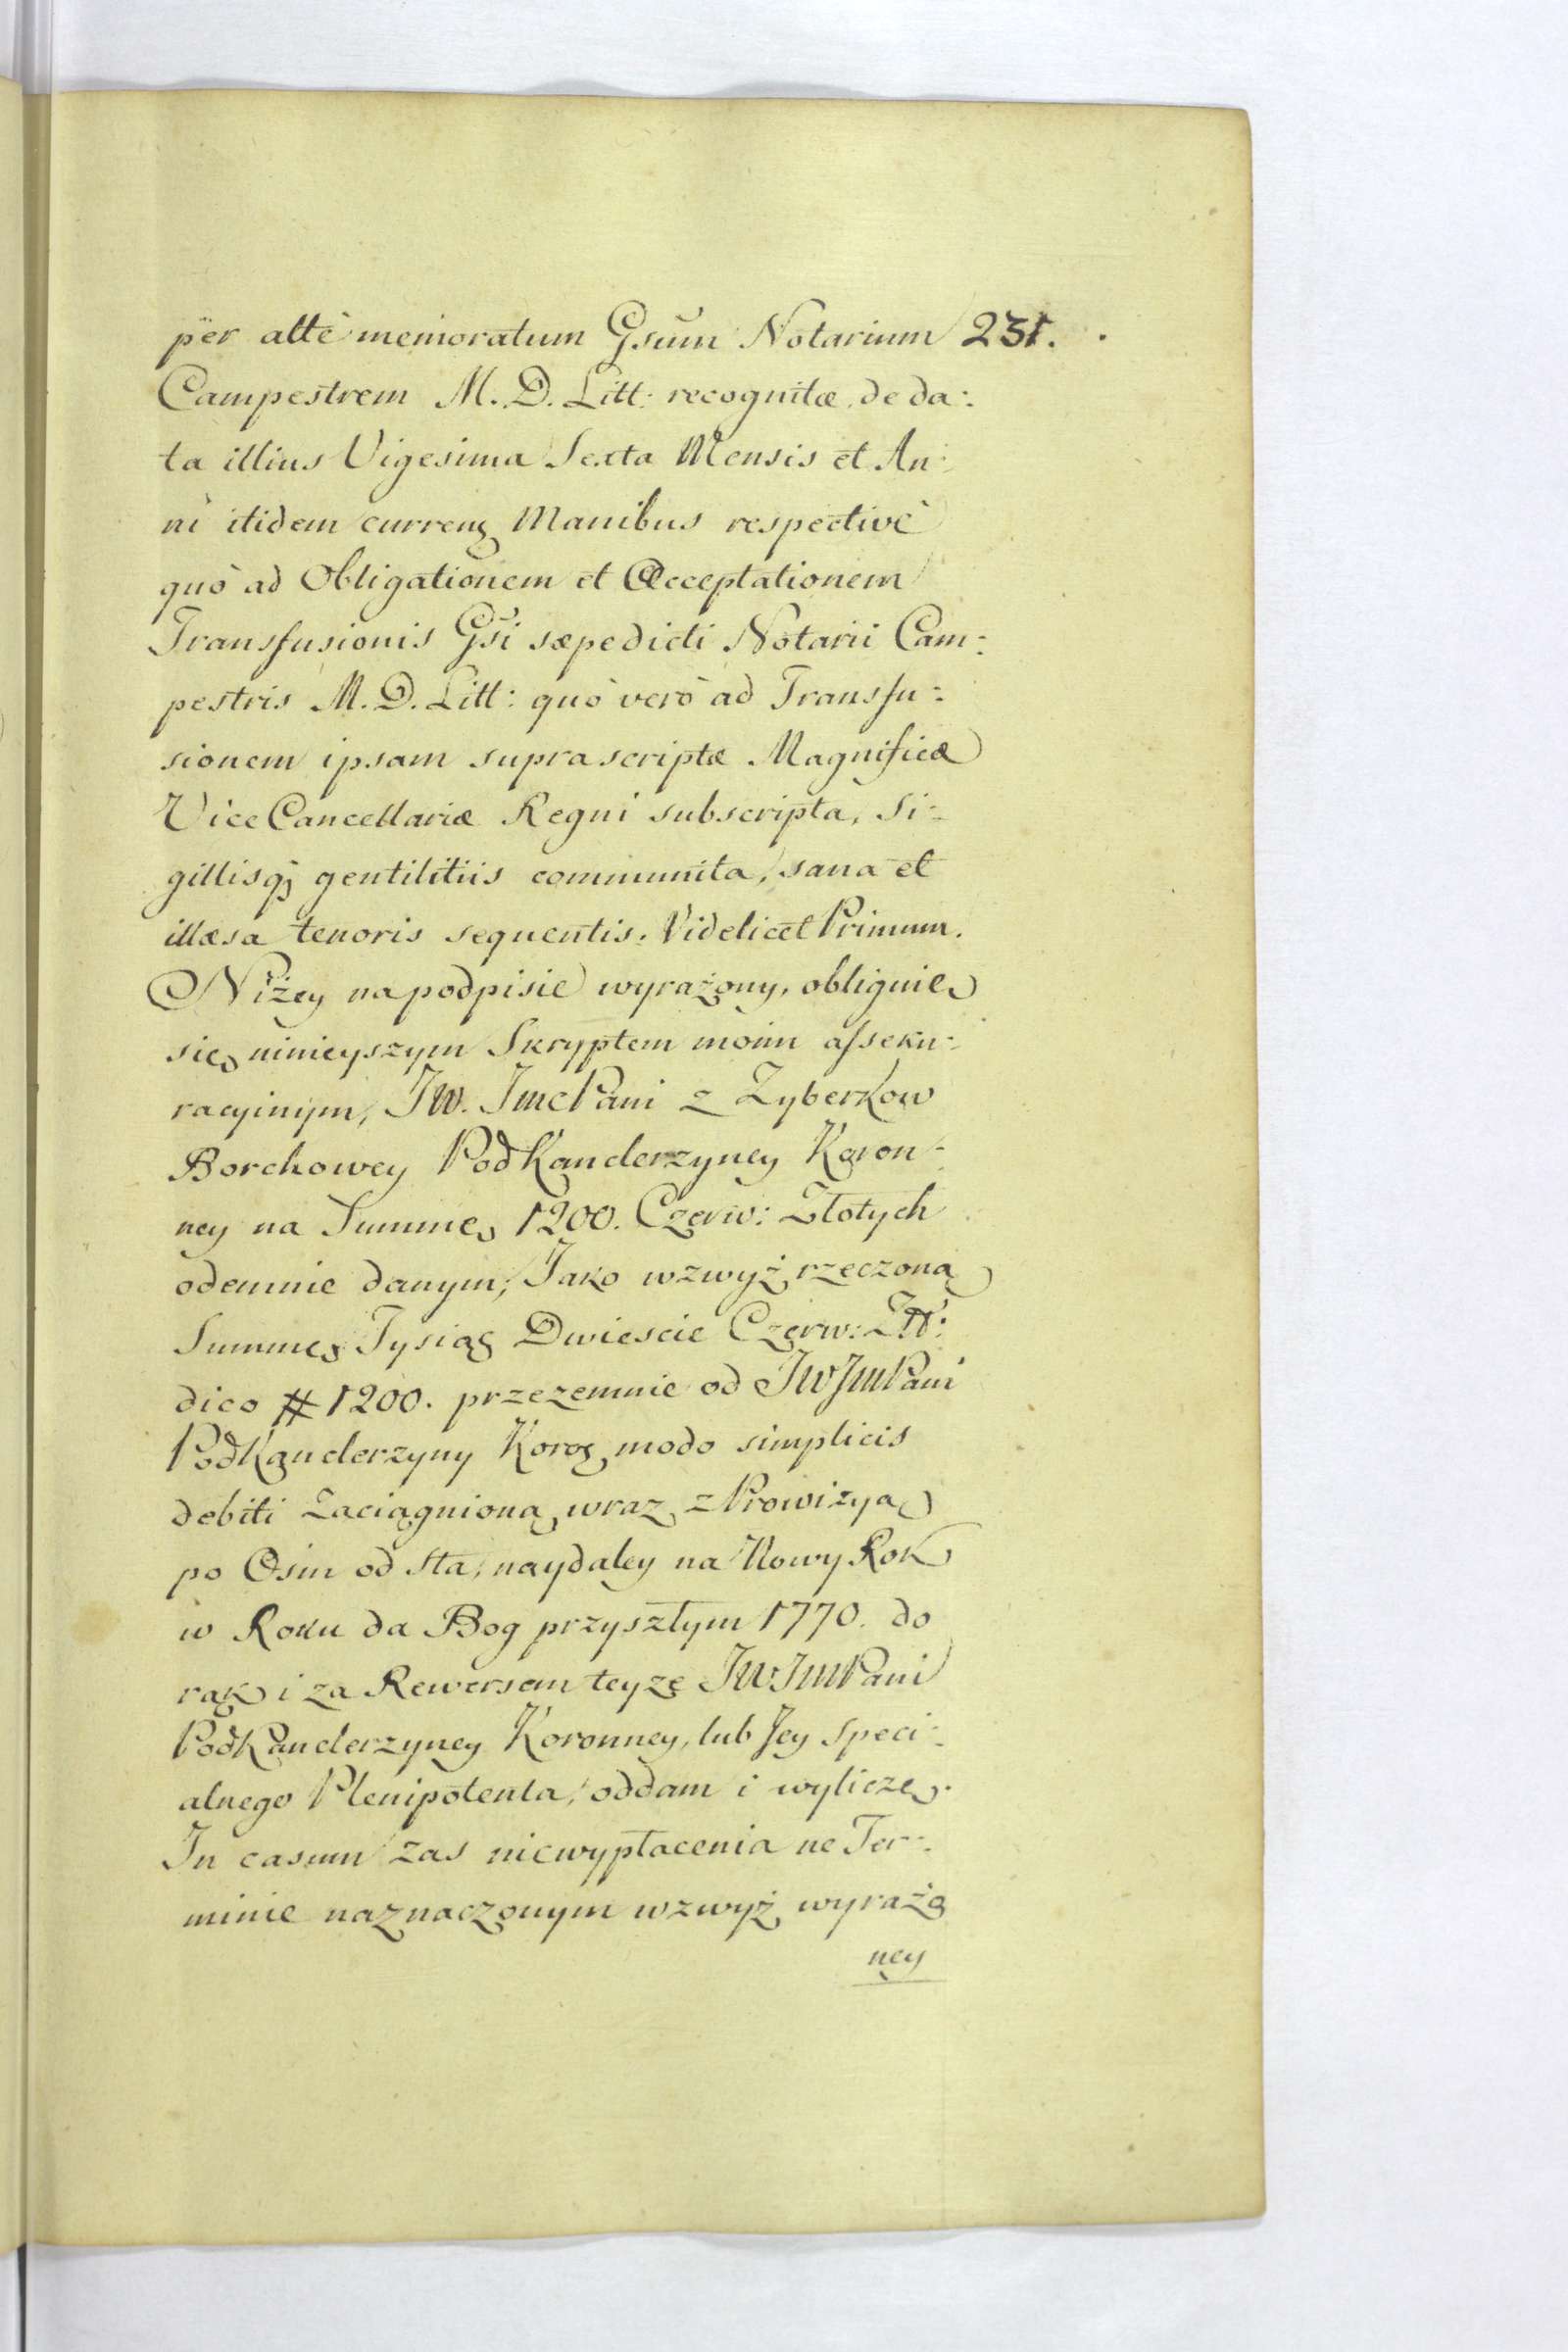 per altè memoratum Gsum Notarium 231.
Campestrem M. D. Litt: recognitæ de da:
ta illius Vigesima Sexta Mensis et An:
ni itidem curreng Manibus respectivè
quò ad Obligationem et Acceptationem
Transfusionis Gsi sæpedicti Notarii Cam:
pestris M. D. Litt: quò verò ad Transfu:
sionem ipsam suprascriptæ Magnificæ
ViceCancellariæ Regni subscripta, Si:
gillisq; gentilitiis communita, sana et
illæsa tenoris sequentis. Videlicet Primum.
Niżey na podpisie wyrażony, obliguię
się ninieyszym Skryptem moim assseku:
racyinym, JW. JmcPani z Zyberkow
Borchowey PodKanclerzyney Koron:
ney na Summę 1200. Czerw: Złotych
odemnie danym, Jako wzwyż rzeczoną
Summę Tysiąc Dwiescie Czerw: Zł:
dico # 1200. przezemnie od JWJmPani
PodKanclerzyny Korog modo simplicis
debiti zaciągnioną wraz z Prowizyą
po Osm od Sta, naydaley na Nowy Rok
w Roku da Bog przyszłym 1770. do
rąk i za Rewersem teyże JWJmPani
PodKanclerzyney Koronney, lub Jey Speci:
alnego Plenipotenta, oddam i wyliczę.
In casum zas niewypłacenia ne Ter:
minie naznaczonym wzwyż wyrażo
ney